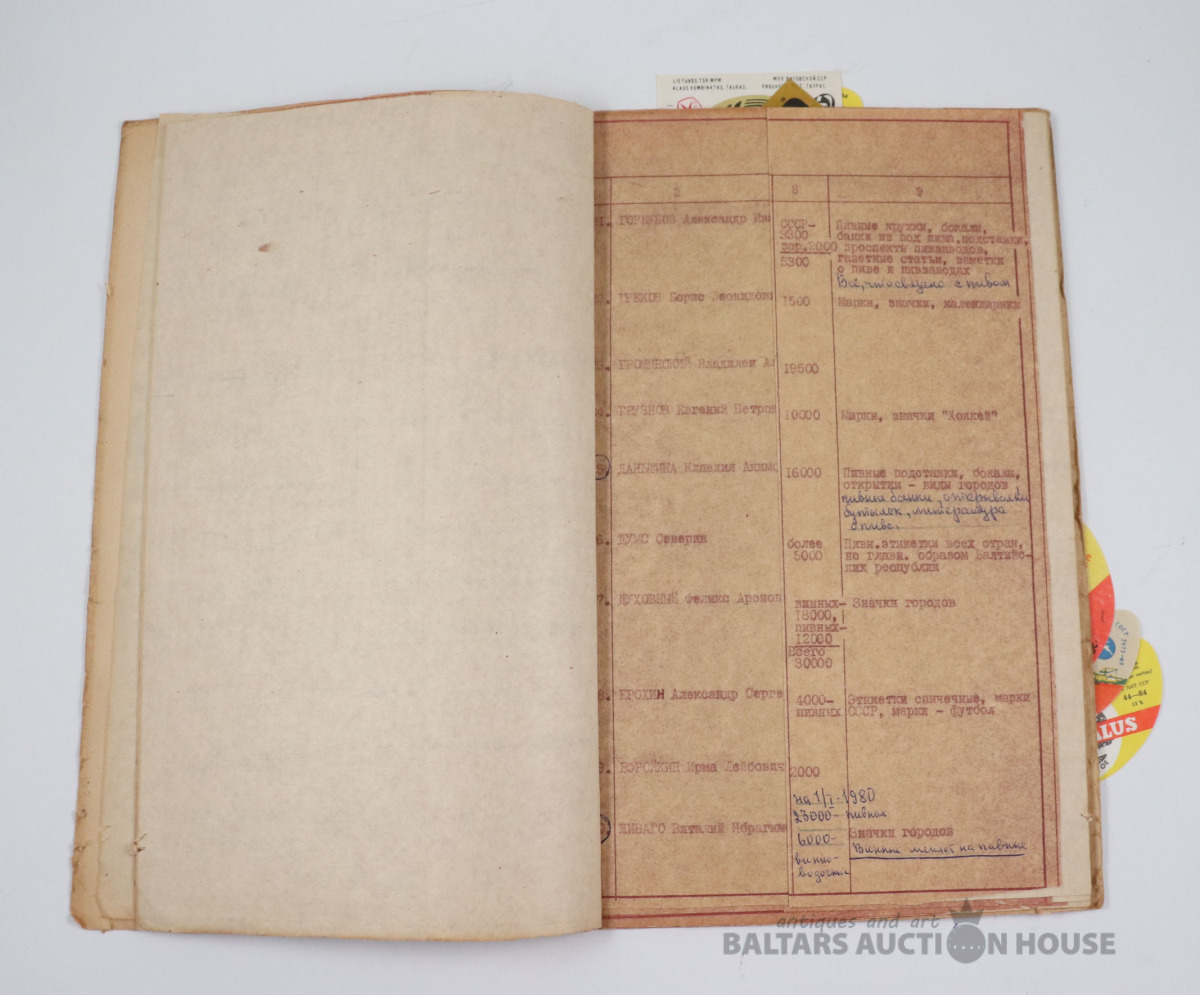 LIETUVOS TSR MPM
ALAUS KOMBINATAS „TAURAS”
2 8 9
ГОРБУНОВ Александр Ив
СССР-
3300
зар.2000
5300
Пивные кружки, бокалы,
банки из под пива, подставки,
проспекты пивзаводов,
газетные статьи, заметки
о пиве и пивзаводах
Всё, что связано с пивом
ГРЕКОВ Борис Леонидови
1500
Марки, значки, календарики
19500
4. ГРУЗНОВ Евгений Петров
10000
Марки, значки "Хоккей"
5. Клавдия Акимо
16000
Пивные подставки, бокалы,
открытки - виды городов
пивные банки, открывалки
бутылок, литература
о пиве.
6. ДУМС Северин
более
5000
Пивн.этикетки всех стран,
но главн. образом Балтийс-
ких республик
7. ДУХОВНЫЙ Феликс Аронов
винных-
18000,
пивных-
12000
Всего
30000
Значки городов
8. ЕРОХИН Александр Серге
4000-
пивных
Этикетки спичечные, марки
СССР, марки - футбол
9. Ирма Лейбович
2000
ЖИВАГО Виталий Ибрагим
на 1/I-1980
23000- пивных
6000-
винно-
водочных
Значки городов
Винные меняет на пивные
ЛИТ ССР
44—84
ALUS
antiques and art
BALTARS AUCTION HOUSE